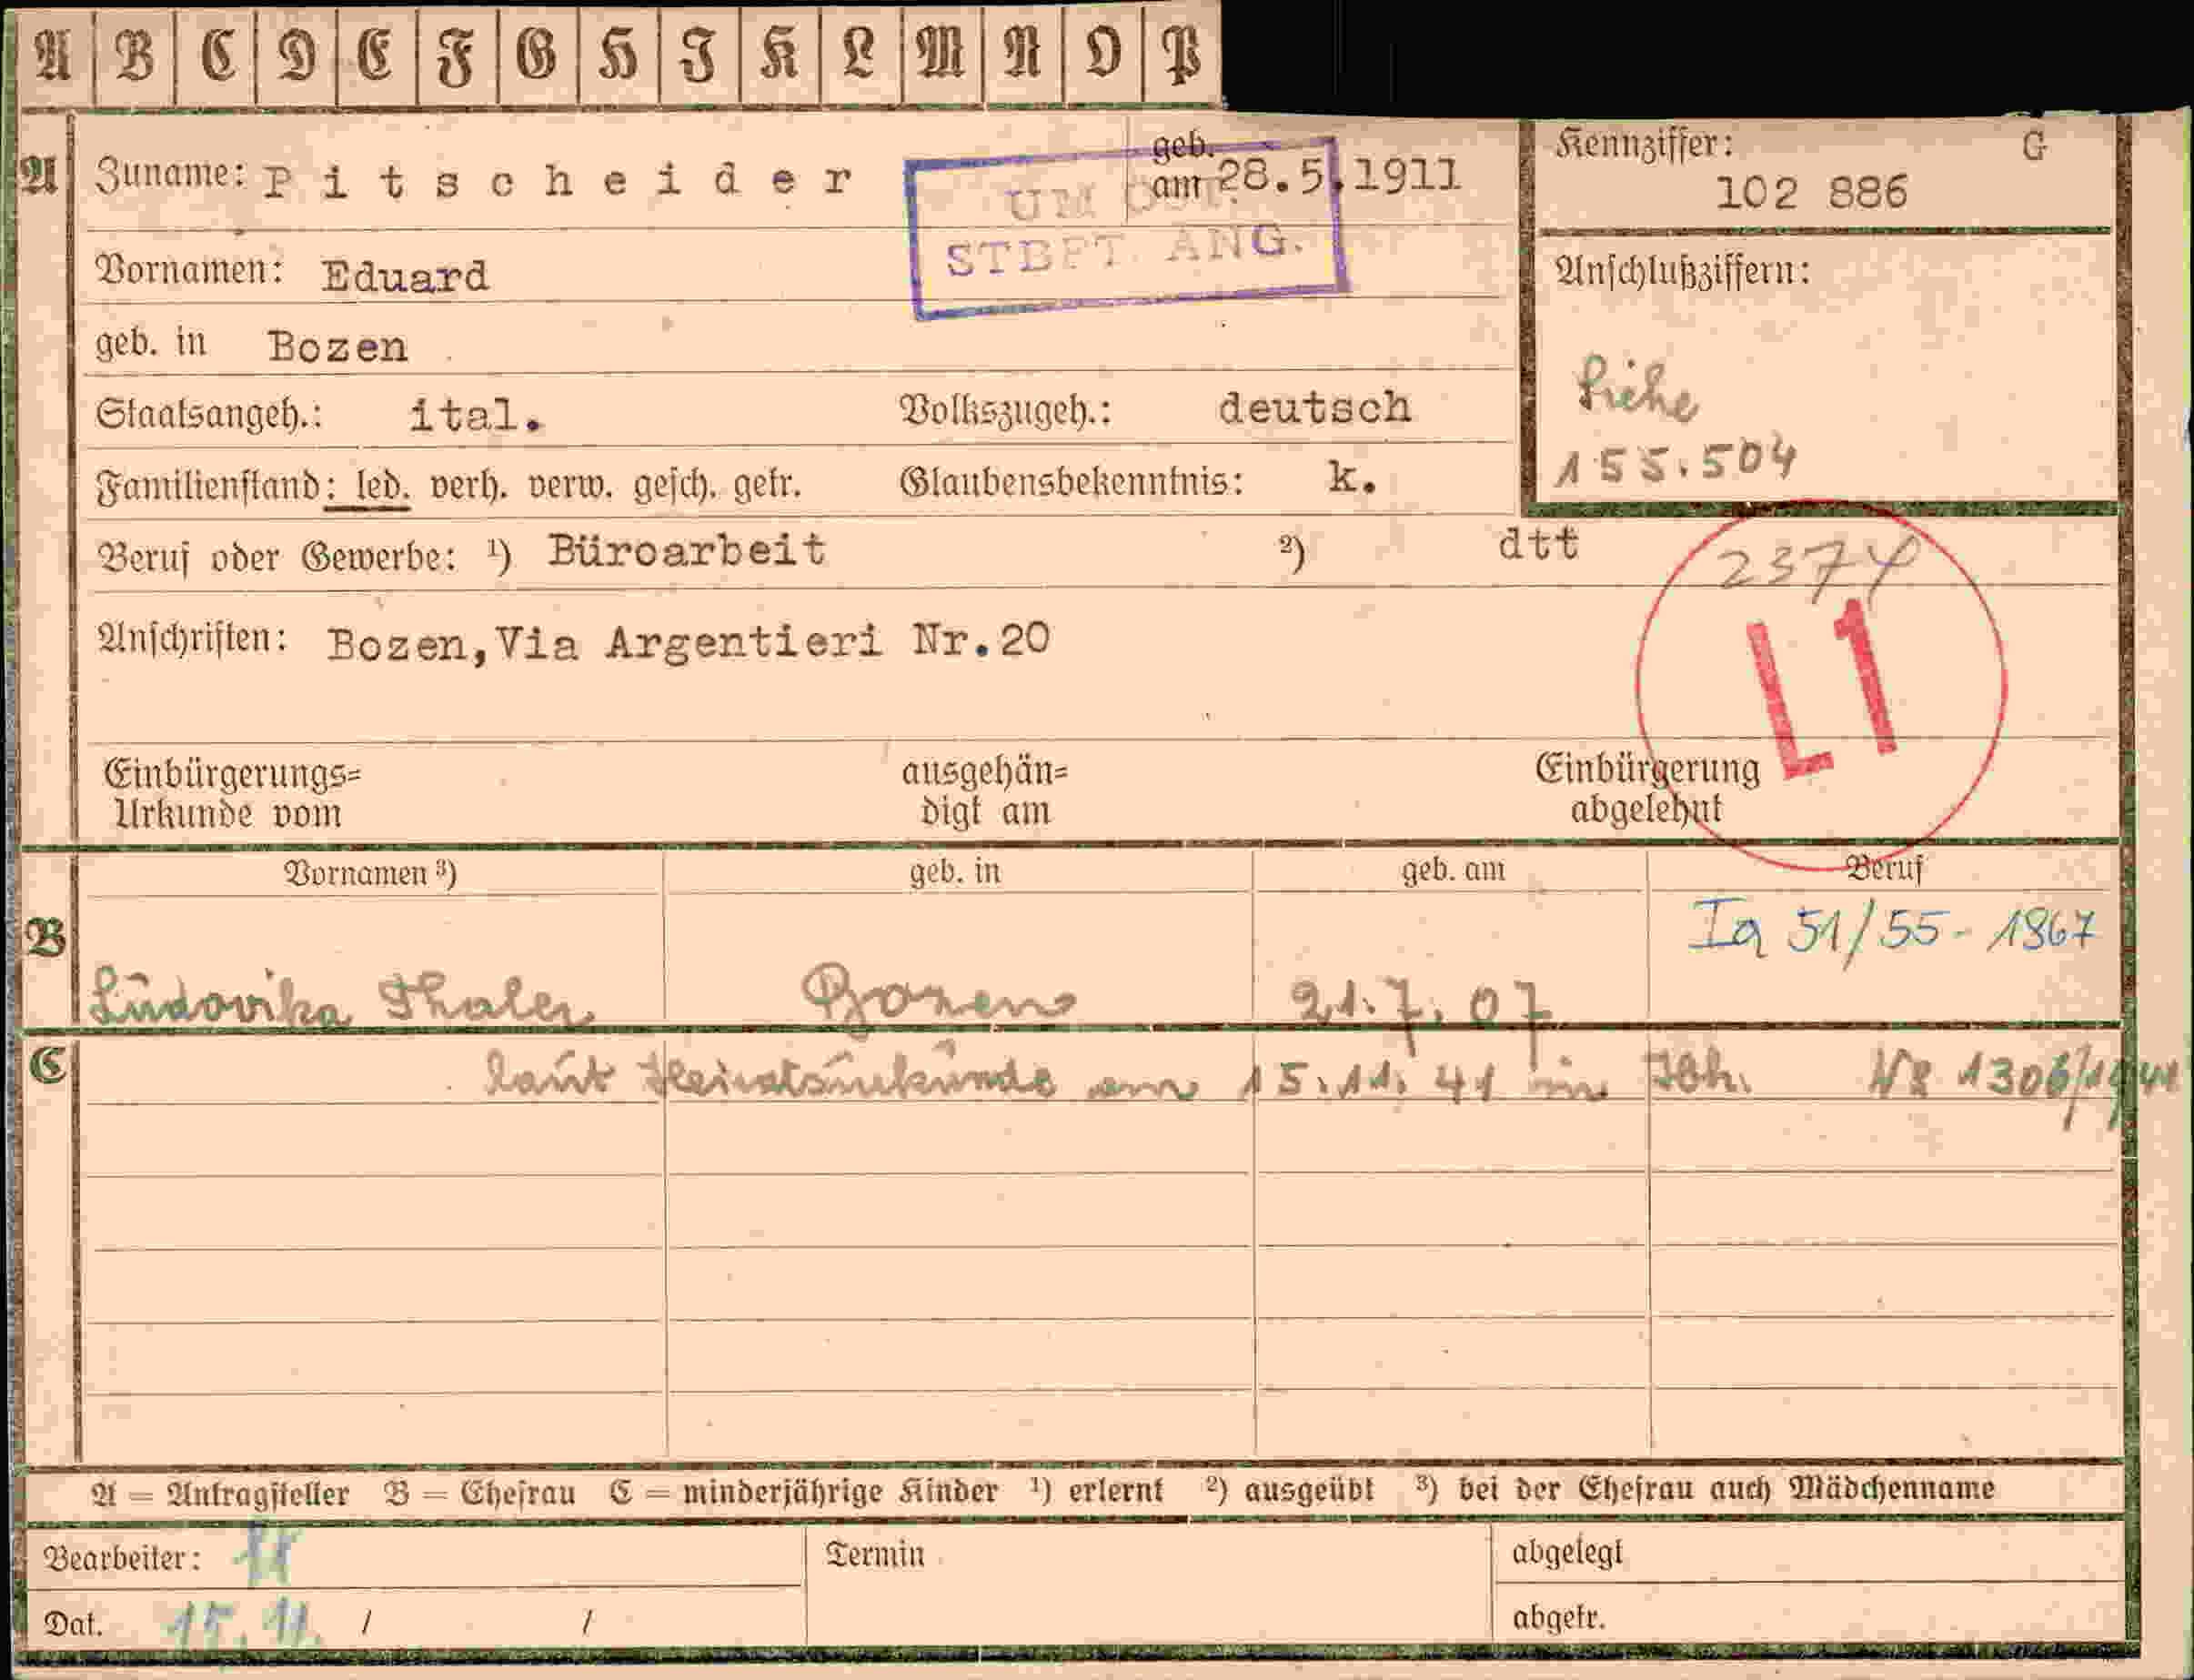 A B C D E F G H I K L M N O P
A Zuname: Pitscheider geb. am 28.5.1911
Kennziffer: G
102 886
UM ÖST.
STBFT. ANG.
Vornamen: Eduard
geb. in Bozen
Anschlußziffern:
Siehe
155.504
Staatsangeh.: ital. Volkszugeh.: deutsch
Familienstand: led. verh. verw. gesch. getr. Glaubensbekenntnis: k.
Beruf oder Gewerbe: ¹) Büroarbeit ²) dtt
2374
L1
Anschriften: Bozen,Via Argentieri Nr.20
Einbürgerungs= ausgehän= Einbürgerung
Urkunde vom digt am abgelehnt
Vornamen ³) geb. in geb. am Beruf
Ia 51/55-1867
B Ludovika Thaler Bozen 21.7.07
C laut Heiratsurkunde am 15.11.41 in Ibk. Nr 1306/1941
A = Antragsteller B = Ehefrau C = minderjährige Kinder ¹) erlernt ²) ausgeübt ³) bei der Ehefrau auch Mädchenname
Bearbeiter: Termin abgelegt
Dat. 15.11. / / abgetr.